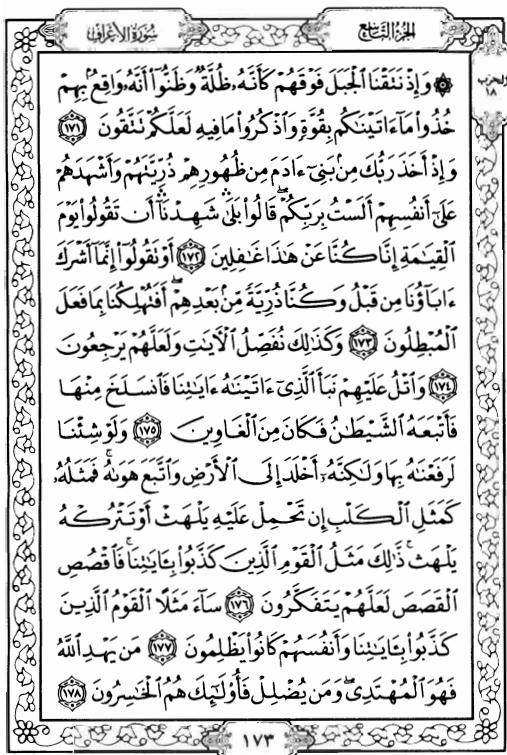 سورة الأعراف
الجزء التاسع
الحزب
١٨
۞ وَإِذ نَتَقْنَا ٱلْجَبَلَ فَوْقَهُمْ كَأَنَّهُۥ ظُلَّةٌ وَظَنُّوٓا۟ أَنَّهُۥ وَاقِعٌۢ بِهِمْ
خُذُوا۟ مَآ ءَاتَيْنَٰكُم بِقُوَّةٍ وَٱذْكُرُوا۟ مَا فِيهِ لَعَلَّكُمْ تَتَّقُونَ ١٧١
وَإِذْ أَخَذَ رَبُّكَ مِنۢ بَنِىٓ ءَادَمَ مِن ظُهُورِهِمْ ذُرِّيَّتَهُمْ وَأَشْهَدَهُمْ
عَلَىٰٓ أَنفُسِهِمْ أَلَسْتُ بِرَبِّكُمْ ۖ قَالُوا۟ بَلَىٰ ۛ شَهِدْنَآ ۛ أَن تَقُولُوا۟ يَوْمَ
ٱلْقِيَٰمَةِ إِنَّا كُنَّا عَنْ هَٰذَا غَٰفِلِينَ ١٧٢ أَوْ تَقُولُوٓا۟ إِنَّمَآ أَشْرَكَ
ءَابَآؤُنَا مِن قَبْلُ وَكُنَّا ذُرِّيَّةً مِّنۢ بَعْدِهِمْ ۖ أَفَتُهْلِكُنَا بِمَا فَعَلَ
ٱلْمُبْطِلُونَ ١٧٣ وَكَذَٰلِكَ نُفَصِّلُ ٱلْءَايَٰتِ وَلَعَلَّهُمْ يَرْجِعُونَ
١٧٤ وَٱتْلُ عَلَيْهِمْ نَبَأَ ٱلَّذِىٓ ءَاتَيْنَٰهُ ءَايَٰتِنَا فَٱنسَلَخَ مِنْهَا
فَأَتْبَعَهُ ٱلشَّيْطَٰنُ فَكَانَ مِنَ ٱلْغَاوِينَ ١٧٥ وَلَوْ شِئْنَا
لَرَفَعْنَٰهُ بِهَا وَلَٰكِنَّهُۥٓ أَخْلَدَ إِلَى ٱلْأَرْضِ وَٱتَّبَعَ هَوَىٰهُ ۚ فَمَثَلُهُۥ
كَمَثَلِ ٱلْكَلْبِ إِن تَحْمِلْ عَلَيْهِ يَلْهَثْ أَوْ تَتْرُكْهُ
يَلْهَث ۚ ذَّٰلِكَ مَثَلُ ٱلْقَوْمِ ٱلَّذِينَ كَذَّبُوا۟ بِـَٔايَٰتِنَا ۚ فَٱقْصُصِ
ٱلْقَصَصَ لَعَلَّهُمْ يَتَفَكَّرُونَ ١٧٦ سَآءَ مَثَلًا ٱلْقَوْمُ ٱلَّذِينَ
كَذَّبُوا۟ بِـَٔايَٰتِنَا وَأَنفُسَهُمْ كَانُوا۟ يَظْلِمُونَ ١٧٧ مَن يَهْدِ ٱللَّهُ
فَهُوَ ٱلْمُهْتَدِى ۖ وَمَن يُضْلِلْ فَأُو۟لَٰٓئِكَ هُمُ ٱلْخَٰسِرُونَ ١٧٨
١٧٣